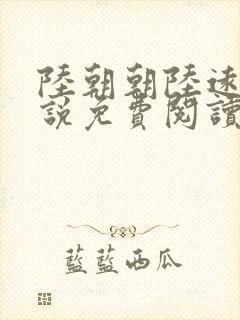 陸朝朝陸遠
說免費閱讀
藍藍西瓜